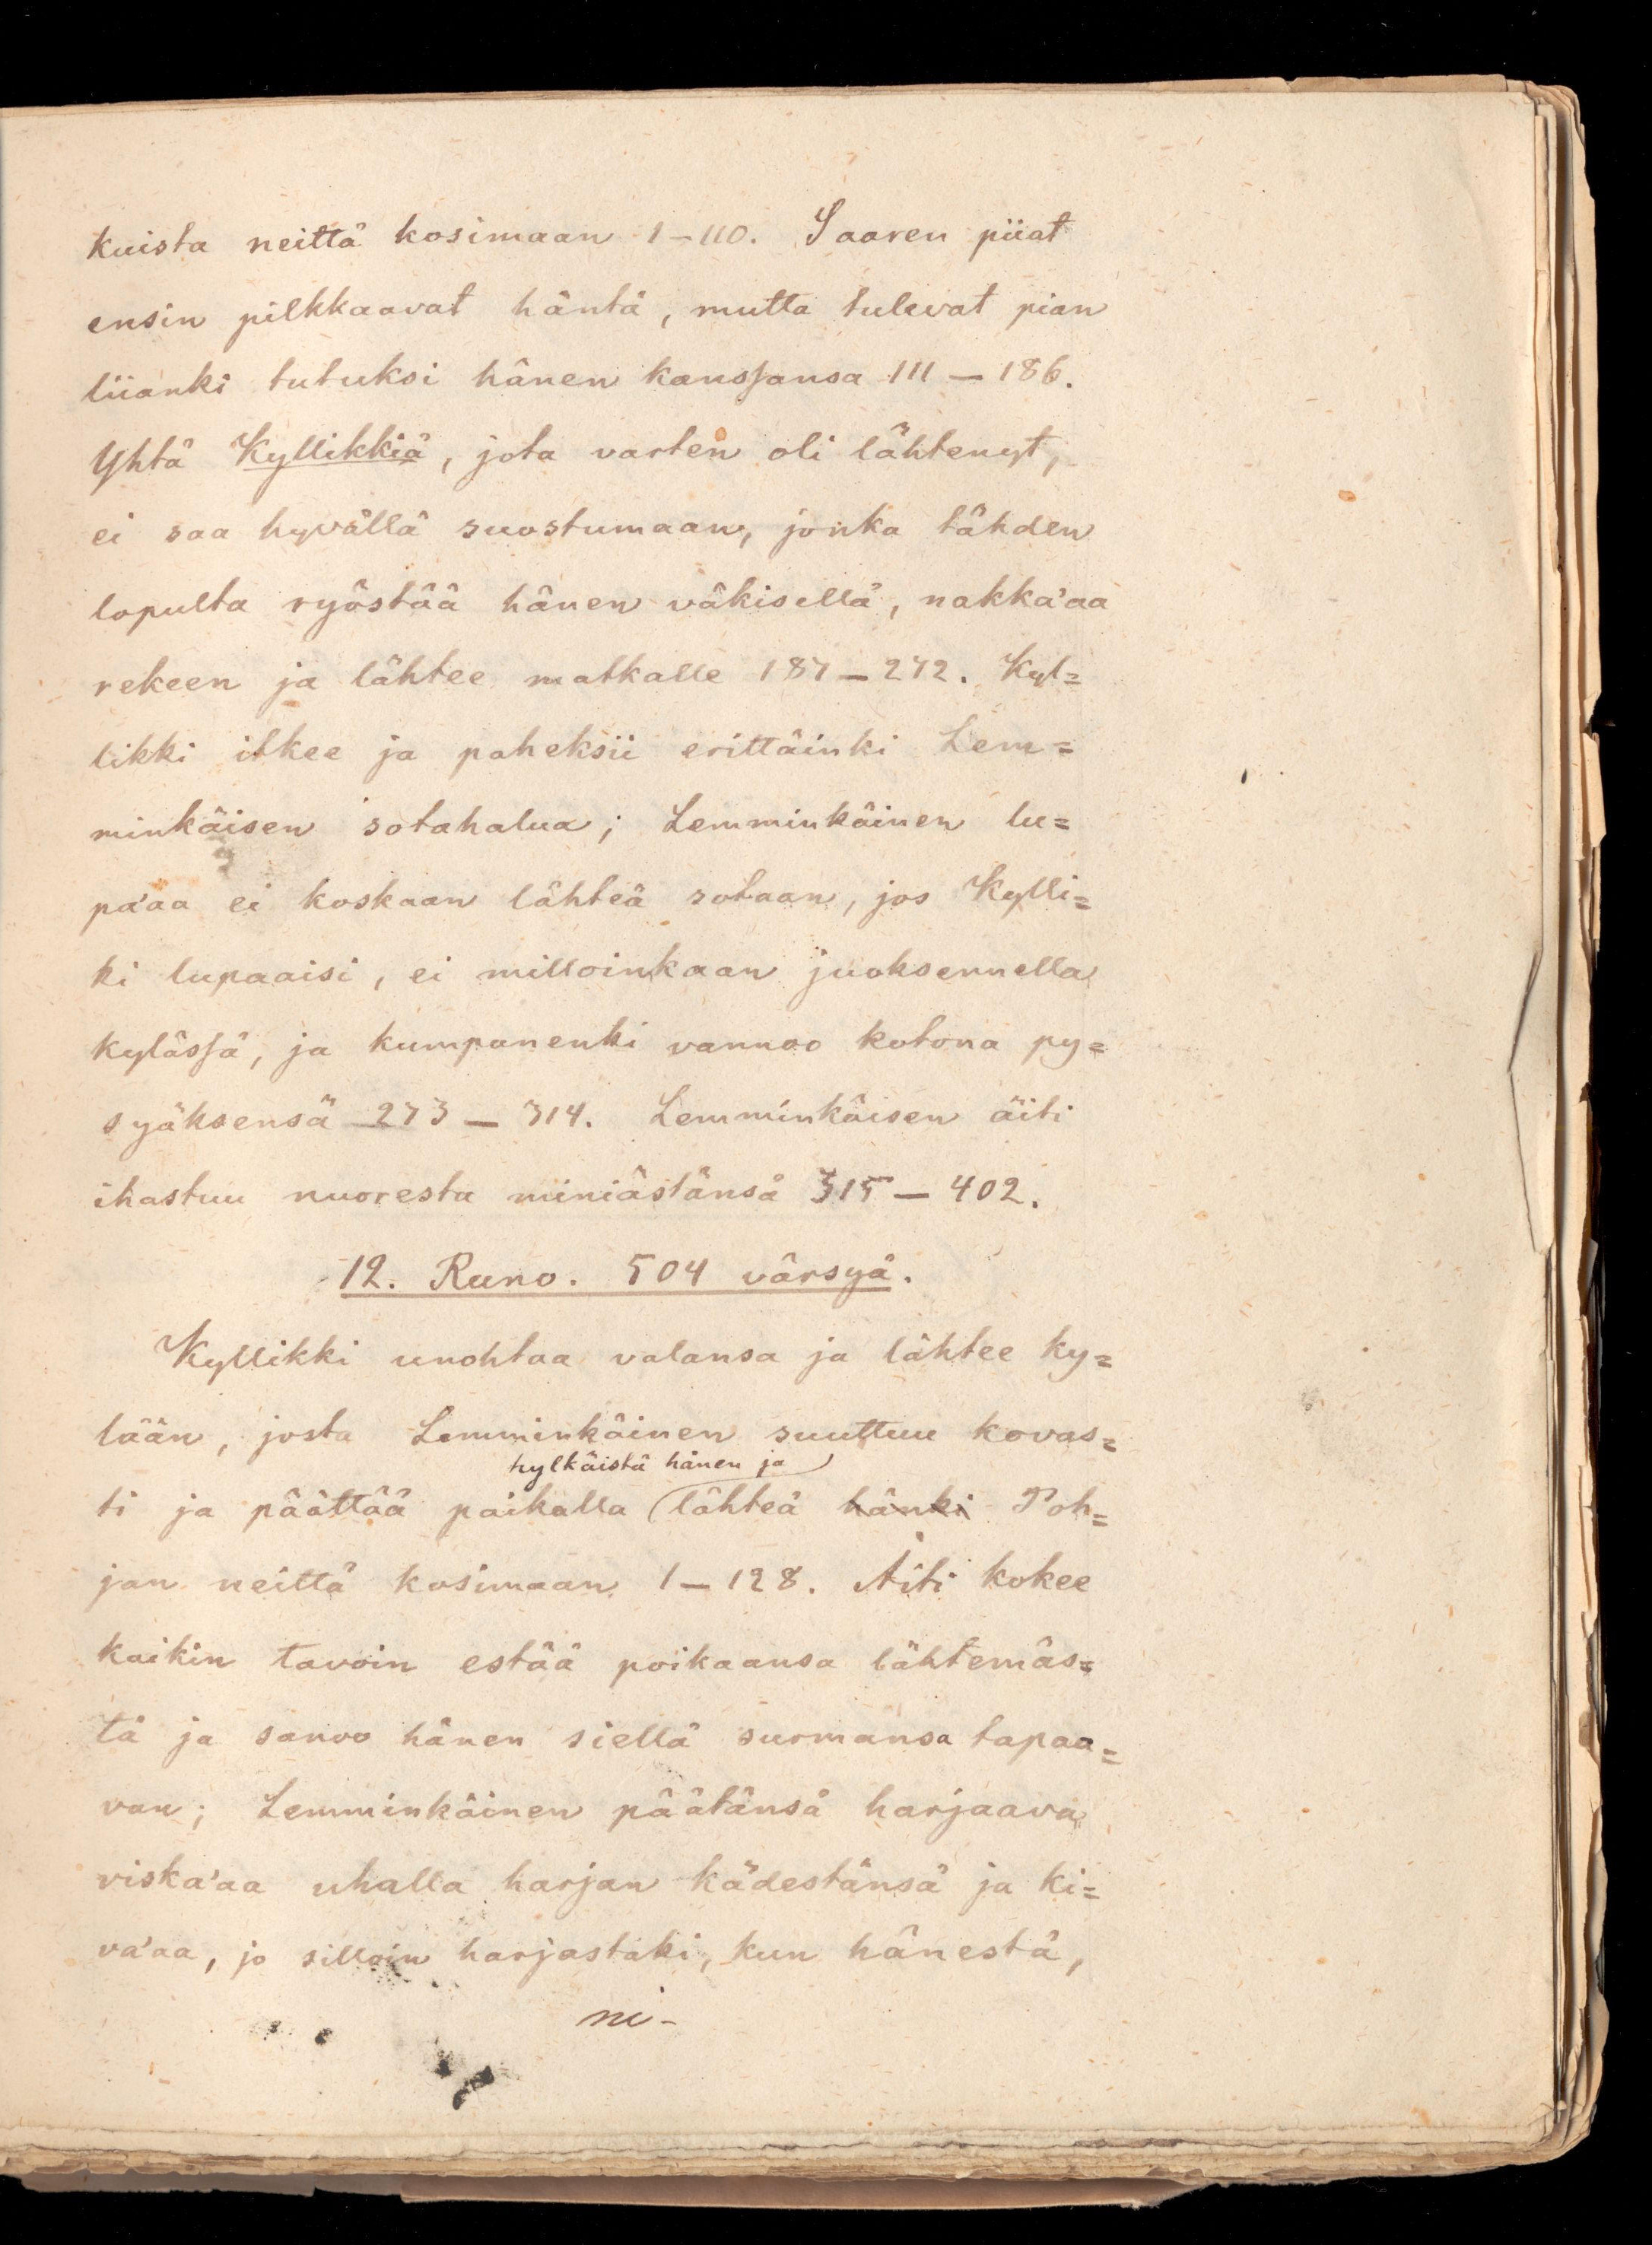 kuista neittä kosimaan 1–110. Saaren piiat
ensin pilkkaavat häntä, mutta tulevat pian
liianki tutuksi hänen kansſansa 111 – 186.
Yhtä Kyllikkiä, jota varten oli lähtenyt,
ei saa hyvällä suostumaan, jonka tähden
lopulta ryöstää hänen väkisellä, nakka'aa
rekeen ja lähtee matkalle 187 – 272. Kyl=
likki itkee ja paheksii erittäinki Lem=
minkäisen sotahalua; Lemminkäinen lu=
pa'aa ei koskaan lähteä sotaan, jos Kylli=
ki lupaaisi, ei milloinkaan juoksennella
kylässä, ja kumpanenki vannoo kotona py=
syäksensä 273 – 314. Lemminkäisen äiti
ihastuu nuoresta miniästänsä 315 – 402.
12. Runo. 504 värsyä.
Kyllikki unohtaa valansa ja lähtee ky=
lään, josta Lemminkäinen suuttuu kovas=
hylkäistä hänen ja
ti ja päättää paikalla (lähteä hänki Poh=
jan neittä kosimaan 1 – 128. Äiti kokee
kaikin tavoin estää poikaansa lähtemäs=
tä ja sanoo hänen siellä surmansa tapaa=
van; Lemminkäinen päätänsä harjaava
viska'aa uhalla harjan kädestänsä ja ki=
va'aa, jo silloin harjastaki, kun hänestä,
ni-